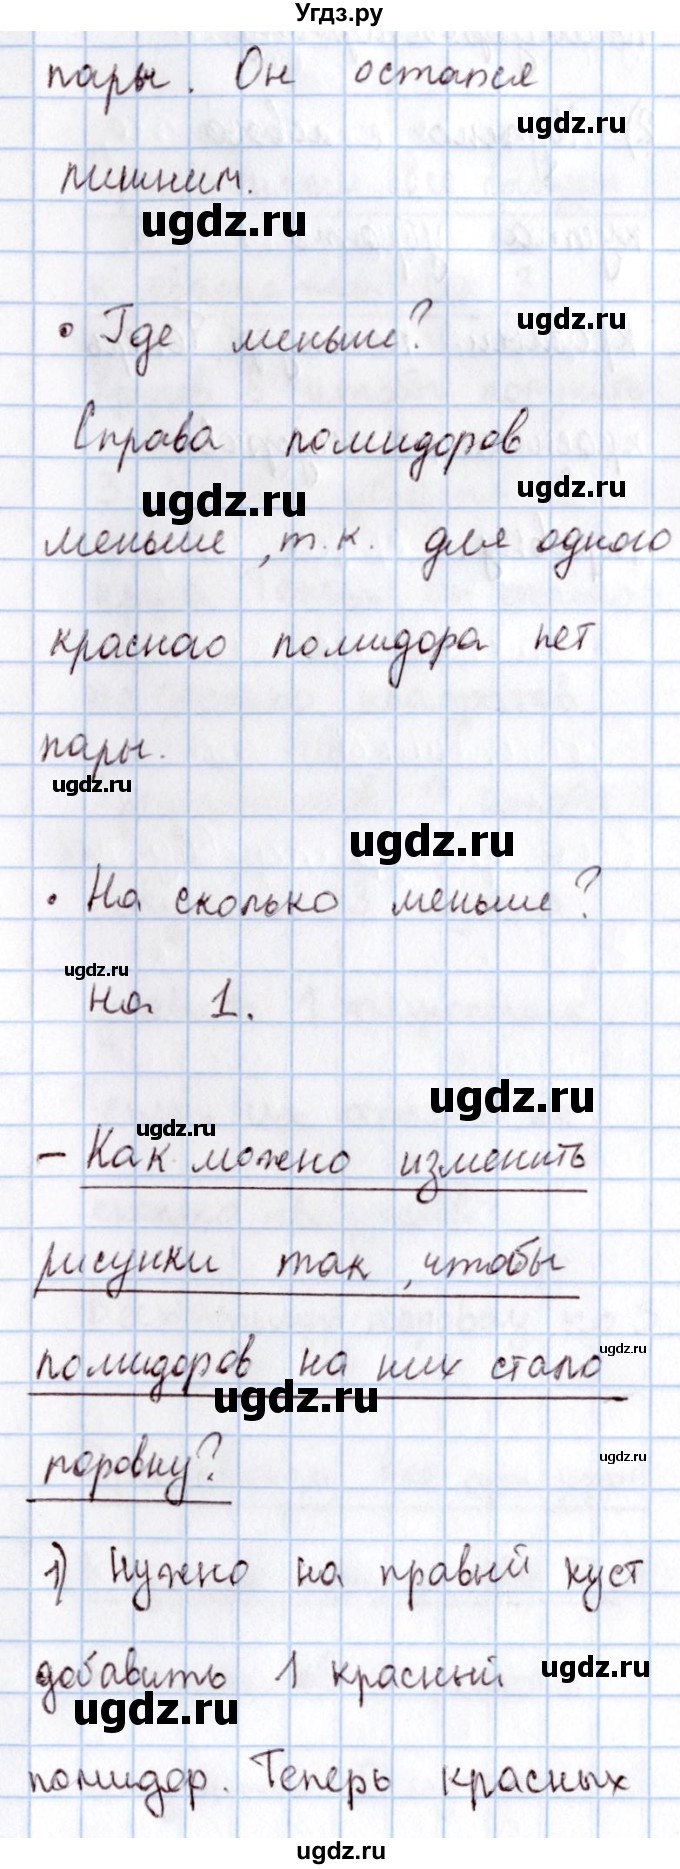 Угдз.ру
пары. Он остался
ugdz.ru
лишним.
ugdz.ru
• Где меньше?
ugdz.ru
Справа помидоров
ugdz.ru
ugdz.ru
меньше, т.к. для одного
красного помидора нет
пары.
ugdz.ru
ugdz.ru
• На сколько меньше?
ugdz.ru
На 1.
ugdz.ru
ugdz.ru
– Как можно изменить
рисунки так, чтобы
ugdz.ru
помидоров на них стало
ugdz.ru
ugdz.ru
поровну?
1) Нужно на правый куст
добавить 1 красный
ugdz.ru
ugdz.ru
помидор. Теперь красных
ugdz.ru